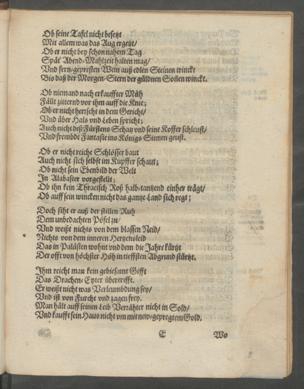 Ob seine Tafel nicht besetzt
Mit allem was das Aug ergetzt/
Ob er nicht bey schon nahem Tag
Spät Abend-Mahlzeit halten mag/
Und fern-gepresten Wein auß edlen Steinen winckt
Biß daß der Morgen-Stern der güldnen Sonnen winckt.
Ob niemand nach erkauffter Müh
Fällt zitternd vor ihm auff die Knie;
Ob er nicht herrscht in dem Gericht/
Und über Hals und Leben spricht;
Auch nicht deß Fürstens Schatz und seine Koffer schleust/
Und frembde Fantasie ins Königs Sinnen geust.
Ob er nicht reiche Schlösser baut
Auch nicht sich selbst im Kupffer schaut;
Ob nicht sein Ebenbild der Welt
In Alabaster vorgestellt;
Ob ihn kein Thracisch Roß halb-tantzend einher trägt/
Ob auff sein wincken nicht das gantze Land sich regt;
Doch siht er auß der stillen Ruh
Dem unbedachten Pöfel zu/
Und weißt nichts von dem blassen Neid/
Nichts von dem inneren Hertzenleid
Das in Palästen wohnt und dem die Jahre kürtzt
Der offt von höchster Höh in tieffsten Abgrund stürtzt.
Ihm reicht man kein gebiesamt Gifft
Das Drachen-Eyter übertrifft.
Er weißt nicht was Verleumbdung sey/
Und ist von Furcht und zagen frey.
Man hält auff seinen Leib Verräther nicht in Sold/
Und kaufft sein Hauß nicht um mit new-geprägtem Gold.
E Wo